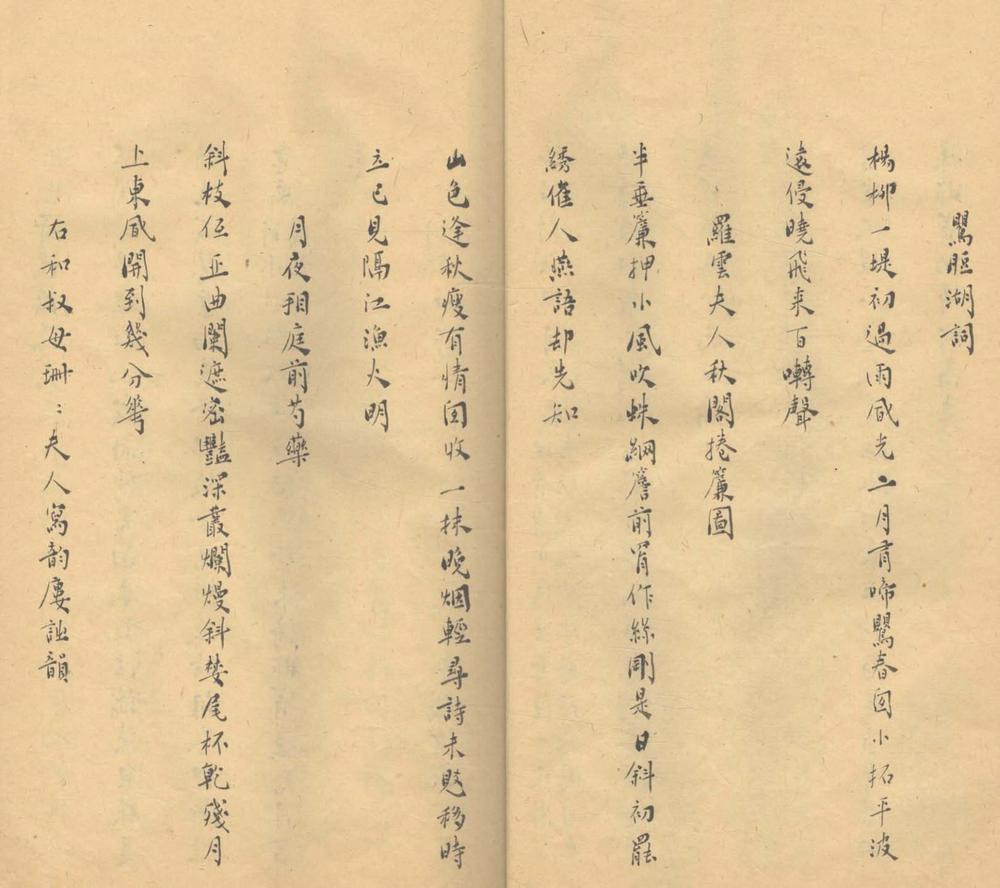 鶯脰湖詞
楊柳一堤初過雨風光二月有啼鶯春回小拓平波
遠侵曉飛来百囀聲
羅雲夫人秋閣捲簾圖
半垂簾押小風吹蛛網簷前罥作絲剛是日斜初罷
綉催人燕語却先知
山色逢秋瘦有情回收一抹晚烟輕尋詩未覺移時
立已見隔江漁火明
月夜翔庭前芍藥
斜枝低亞曲闌遮密豔深叢爛熳斜婪尾杯乾殘月
上東風開到幾分華
右和叔母珊〻夫人寫韵廔詠韻